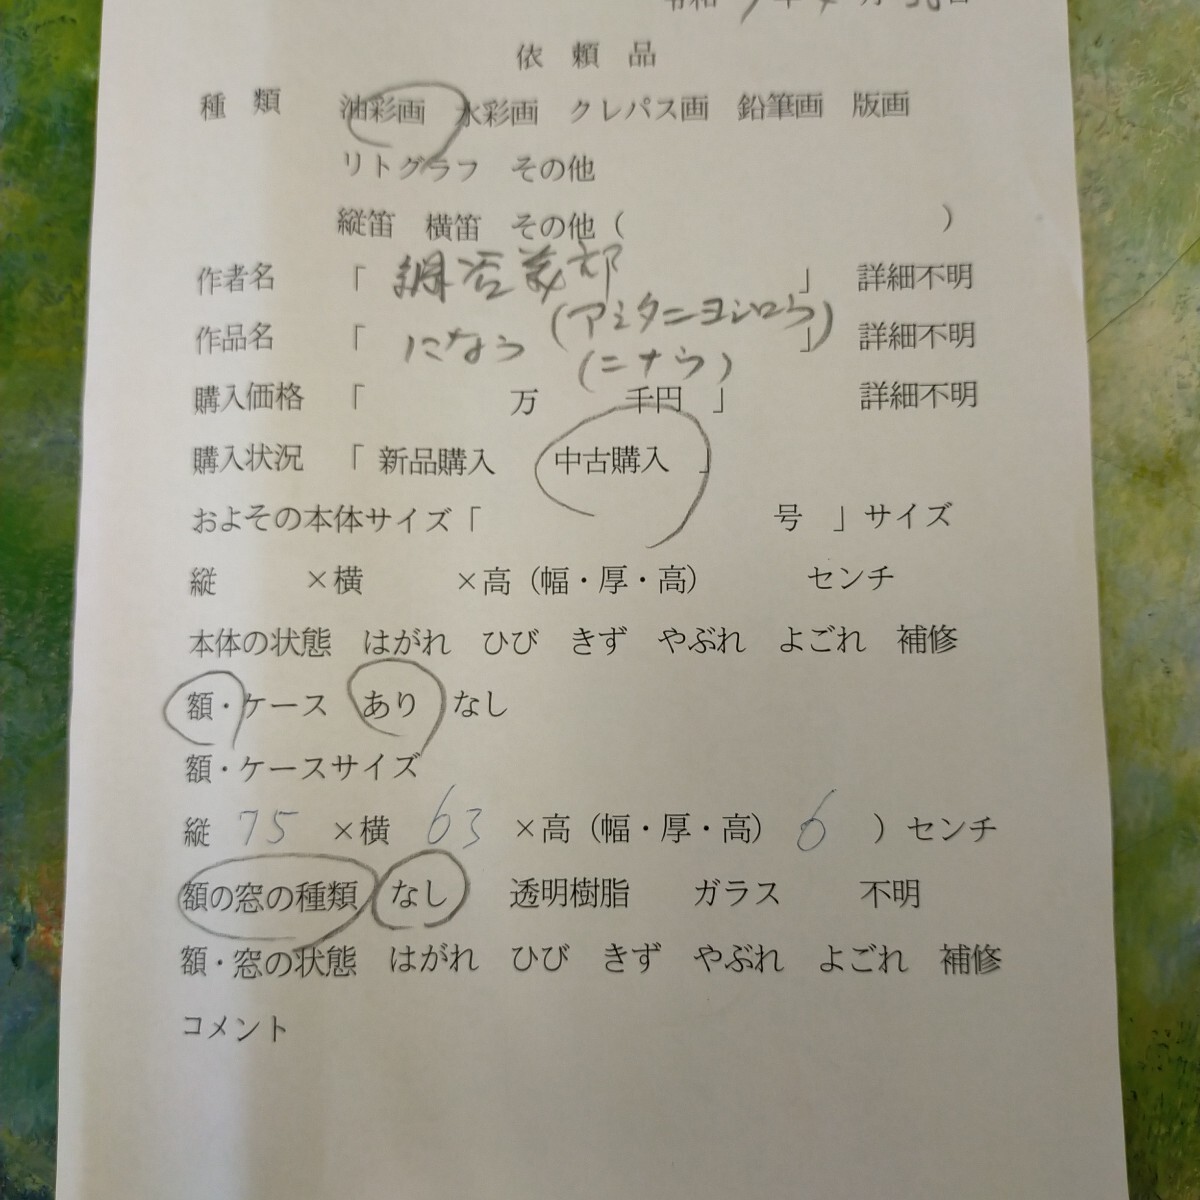 依頼品
種類 油彩画 水彩画 クレパス画 鉛筆画 版画
リトグラフ その他
縦笛 横笛 その他( )
作者名 「網谷義郎」 詳細不明
(アミタニヨシロウ)
作品名 「になう」 詳細不明
(ニナウ)
購入価格 「 万 千円 」 詳細不明
購入状況 「 新品購入 中古購入 」
およその本体サイズ「 号 」サイズ
縦 ×横 ×高(幅・厚・高) センチ
本体の状態 はがれ ひび きず やぶれ よごれ 補修
額・ケース あり なし
額・ケースサイズ
縦 75 ×横 63 ×高(幅・厚・高) 6 )センチ
額の窓の種類 なし 透明樹脂 ガラス 不明
額・窓の状態 はがれ ひび きず やぶれ よごれ 補修
コメント